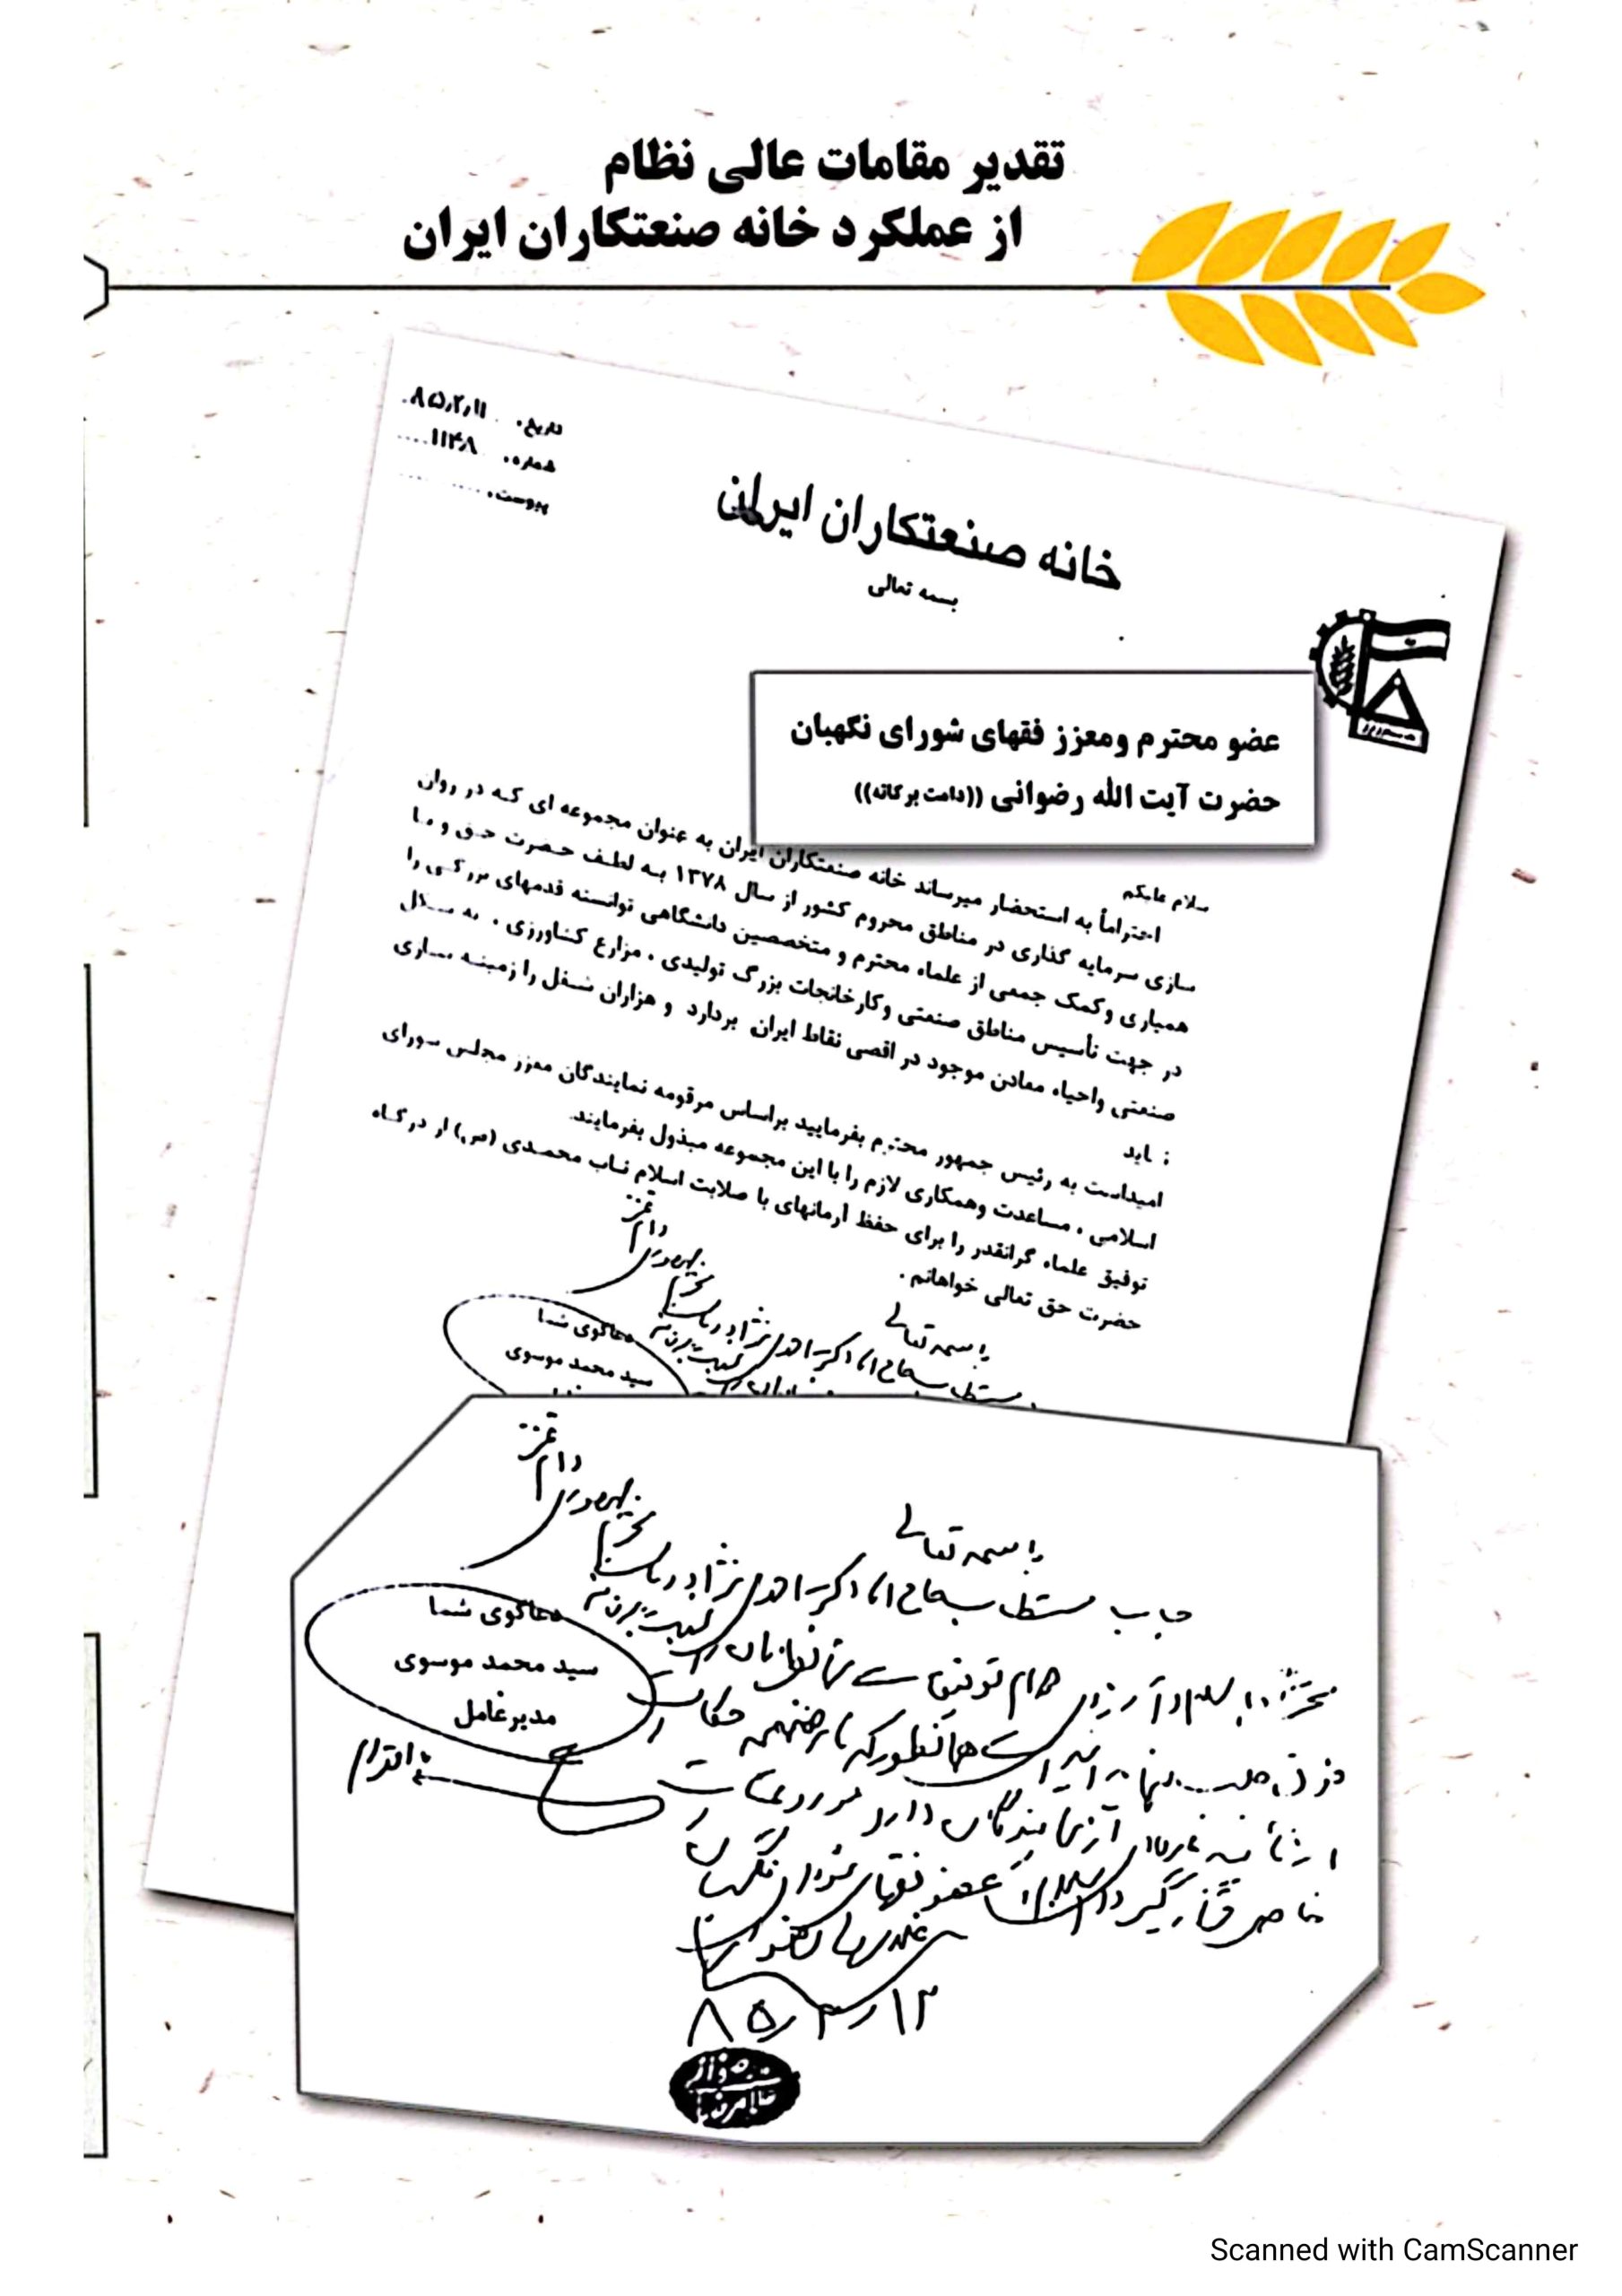 تقدیر مقامات عالی نظام
از عملکرد خانه صنعتکاران ایران
تاریخ: ۸۵٫۲٫۱۱
شماره: ۱۱۴۸
پیوست:
خانه صنعتکاران ایران
بسمه تعالی
عضو محترم ومعزز فقهای شورای نگهبان
حضرت آیت الله رضوانی ((دامت برکاته))
سلام علیکم
احتراماً به استحضار میرساند خانه صنعتکاران ایران به عنوان مجموعه ای که در روان
سازی سرمایه گذاری در مناطق محروم کشور از سال ۱۳۷۸ به لطف حضرت حق و با
همیاری وکمک جمعی از علماء محترم و متخصصین دانشگاهی توانسته قدمهای بزرگی را
در جهت تأسیس مناطق صنعتی وکارخانجات بزرگ تولیدی ، مزارع کشاورزی ،
صنعتی واحیاء معادن موجود در اقصی نقاط ایران بردارد و هزاران شغل را زمینه سازی
نماید
امیداست به رئیس جمهور محترم بفرمایید براساس مرقومه نمایندگان معزز مجلس شورای
اسلامی ، مساعدت وهمکاری لازم را با این مجموعه مبذول بفرمایند.
توفیق علماء گرانقدر را برای حفظ آرمانهای با صلابت اسلام ناب محمدی (ص) از درگاه
حضرت حق تعالی خواهانم .
باسمه تعالی
دعاگوی شما
سید محمد موسوی
باسمه تعالی
جناب مستطاب آقای دکتر احمدی نژاد ریاست محترم جمهوری دام عزه
دعاگوی شما
سید محمد موسوی
مدیرعامل
با سلام و آرزوی دوام توفیق
همانطور که
نمایندگان دارد مورد عنایت
خاص قرار گیرد والسلام عضو فقهای شورای نگهبان
غلامرضا رضوانی
۸۵٫۲٫۱۲
Scanned with CamScanner